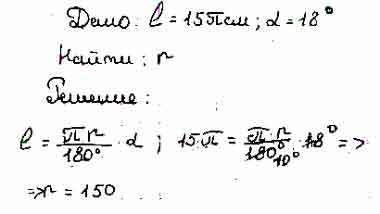 Дано: ℓ = 15π см; α = 18°
Найти: r
Решение:
ℓ = πr/180° · α; 15π = π·r/180° 10° · 18° =>
=> r = 150